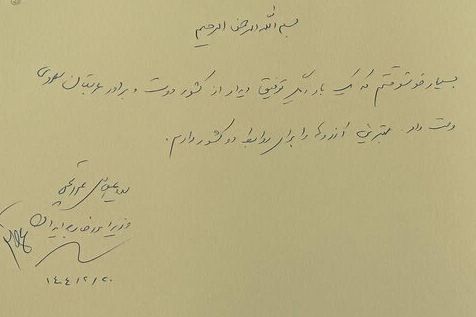 بسم الله الرحمن الرحیم
بسیار خوشوقتم که یک بار دیگر توفیق دیدار از کشور دوست و برادر عربستان سعودی
دست داد بهترین آرزوها را برای روابط دو کشور دارم.
سید عباس عراقچی
وزیر امور خارجه ایران
۱۴۰۴/۲/۲۰